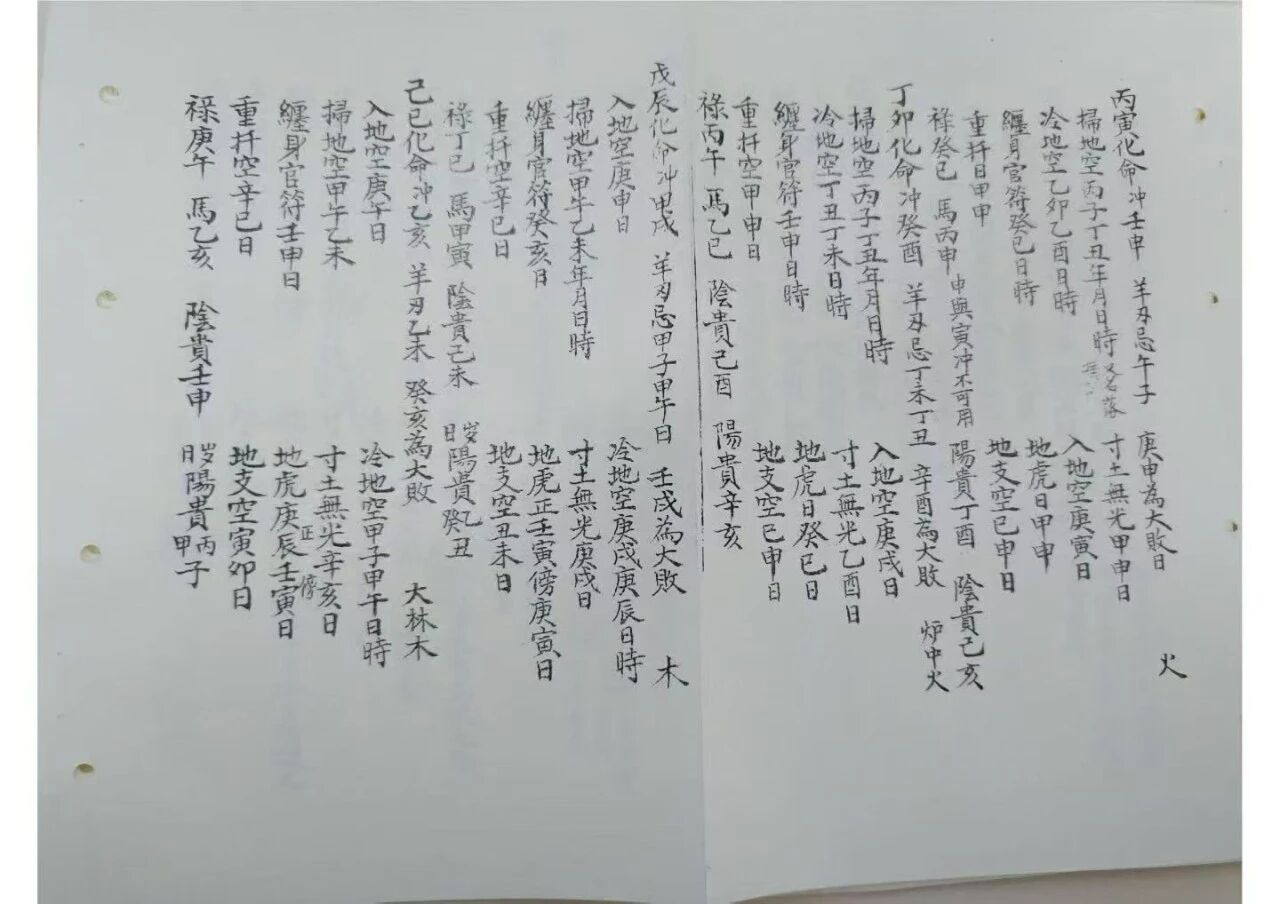 丙寅化命冲壬申 羊刃忌午子 庚申為大敗日 火
掃地空丙子丁丑年月日時 又名落 寸土無光甲申日
冷地空乙卯乙酉日時 入地空庚寅日
纏身官符癸巳日時 地虎日甲申
重扦日甲申 地支空巳申日
祿癸巳 馬丙申 申與寅冲不可用 陽貴丁酉 陰貴己亥
丁卯化命冲癸酉 羊刃忌丁未丁丑 辛酉為大敗 炉中火
掃地空丙子丁丑年月日時 入地空庚戌日
冷地空丁丑丁未日時 寸土無光乙酉日
纏身官符壬申日時 地虎日癸巳日
重扦空甲申日 地支空巳申日
祿丙午 馬乙巳 陰貴己酉 陽貴辛亥
戊辰化命冲甲戌 羊刃忌甲子甲午日 壬戌為大敗 木
入地空庚申日 冷地空庚戌庚辰日時
掃地空甲午乙未年月日時 寸土無光庚戌日
纏身官符癸亥日 地虎正壬寅傍庚寅日
重扦空辛巳日 地支空丑未日
祿丁巳 馬甲寅 陰貴己未 日岁陽貴癸乙丑
己巳化命冲乙亥 羊刃乙未 癸亥為大敗 大林木
入地空庚午日 冷地空甲子甲午日時
掃地空甲午乙未 寸土無光辛亥日
纏身官符壬申日 地虎庚辰正壬寅傍日
重扦空辛巳日 地支空寅卯日
祿庚午 馬乙亥 陰貴壬申 日岁陽貴甲丙子